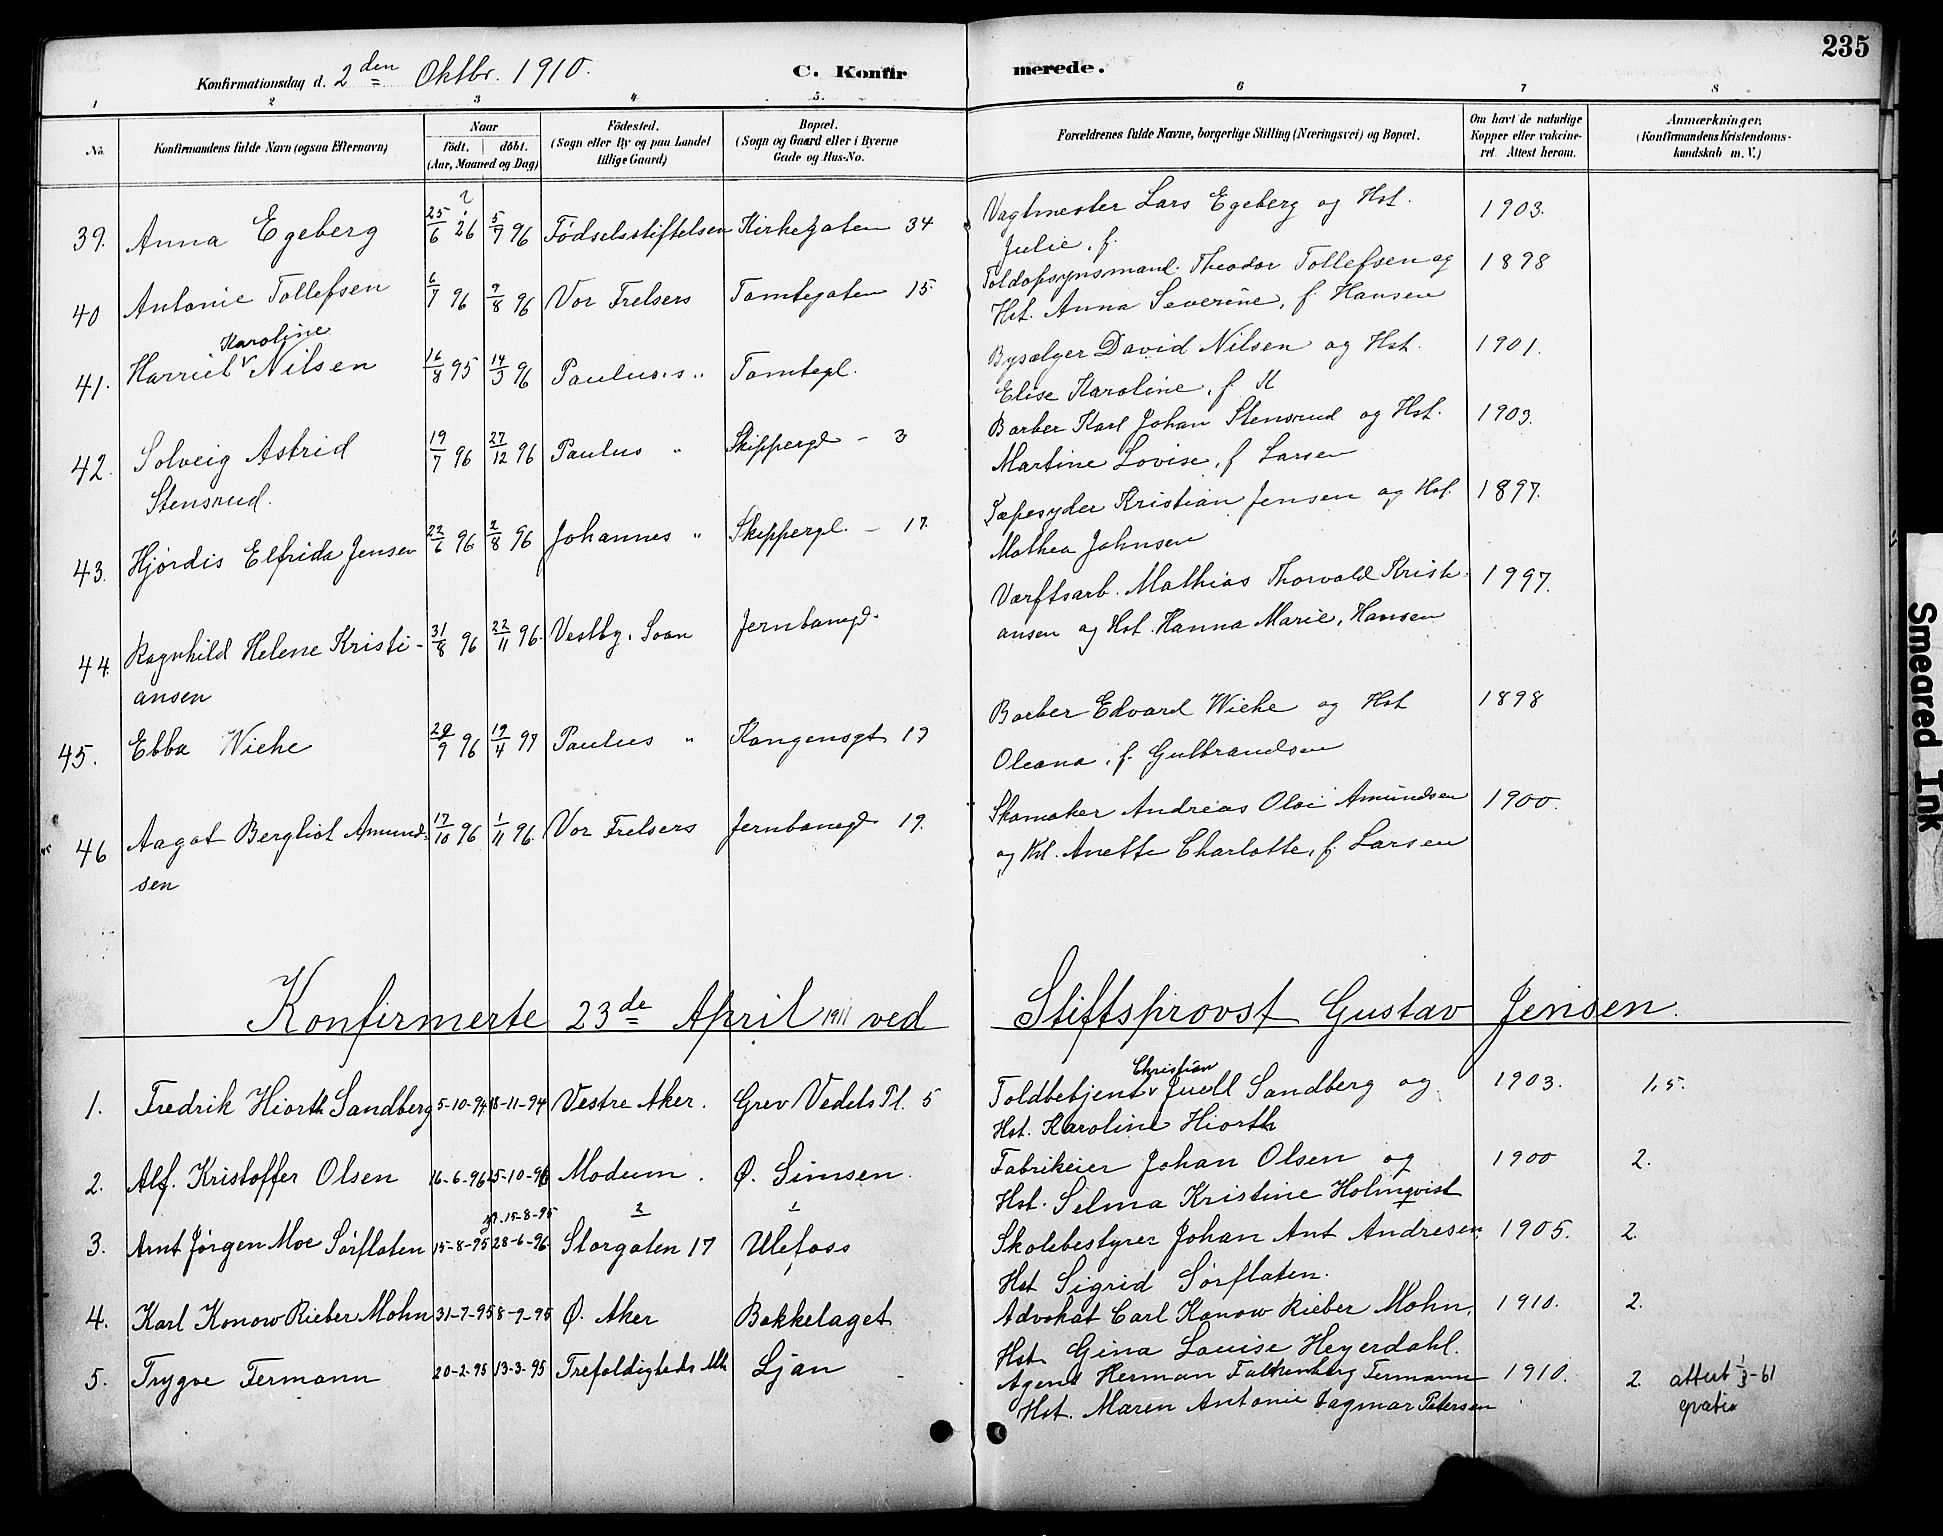 235
Konfirmationsdag d. 2den Oktbr. 1910. C. Konfirmerede.
1 2 3 4 5. 6 7 8
No. Konfirmandens fulde Navn (ogsaa Efternavn) Naar født. døbt. (Aar, Maaned og Dag) Födested. (Sogn eller By og paa Landet tillige Gaard) Bopæl. (Sogn og Gaard eller i Byerne Gade og Hus-No. Forældrenes fulde Navne, borgerlige Stilling (Næringsvei) og Bopæl. Om havt de naturlige Kopper eller vakcineret. Attest herom. Anmærkninger, (Konfirmandens Kristendomskundskab m. V.)
39. Anna Egeberg 25/6 26 ? 5/7 96 Fødselsstiftelsen Kirkegaten 34 Vagtmester Lars Egeberg og Hst. 1903.
Julie, f.
40 Antonie Tollefsen 6/7 96 9/8 96 Vor Frelsers Tomtegaten 15. Toldopsynsmand Theodor Tollefsen og 1898
Hst. Anna Severine, f. Hansen
41. Harriet Karoline Nilsen 16/8 95 14/3 96 Paulus's " Tomtegt. Bysælger David Nilsen og Hst. 1901.
Elise Karoline, f. K
42. Solveig Astrid 19/7 96 27/12 96 Paulus " Skippergt - 3 Barber Karl Johan Stensrud og Hst. 1903.
Stensrud. Martine Lovise, f. Larsen
43. Hjørdis Elfrida Jensen 22/6 96 2/8 96 Johannes " Skippergt. - 17. Sæpesyder Kristian Jensen og Hst. 1897.
Mathea Johnsen
44. Ragnhild Helene Kristi- 31/8 96 22/11 96. Vestby. Soon Jernbanegt. Værftsarb. Mathias Thorvald Kristi- 1997.
ansen ansen og Hst. Hanna Marie, Hansen
45. Ebba Wiehe 29/9 96 19/4 97 Paulus " Kongensgt 17 Barber Edvard Wiehe og Hst 1898
Oleana, f. Gulbrandsen
46 Aagot Bergliot Amund- 17/10 96 1/11 96. Vor Frelsers Jernbanegt 19. Skomaker Andreas Olai Amundsen 1900.
sen og Hst. Anette Charlotte, f. Larsen
Konfirmerte 23de April 1911 ved Stiftsprovst Gustav Jensen.
1. Fredrik Hiorth Sandberg 5-10-94 18-11-94 Vestre Aker. Grev Vedels Pl. 5 Toldbetjent Christian Juell Sandberg og 1903. 1,5.
Hst. Karoline Hiorth
2. Alf. Kristoffer Olsen 16-6-96 25-10-96 Modum. Ø. Simsen. Fabrikeier Johan Olsen og 1900 2.
Hst. Selma Kristine Holmqvist
3. Arnt Jørgen Moe Sørflaten 15-8-95 28-6-96. Storgaten 17 Ulefoss Skolebestyrer Johan Ant Andresen. 1905. 2.
Hst Sigrid Sørflaten.
4. Karl Konow Rieber Mohn 31-7-95 8-9-95 Ø. Aker Bekkelaget Advokat Carl Konow Rieber Mohn, 1910. 2.
Hst. Gina Louise Heyerdahl.
5. Trygve Fermann 20-2-95 13-3-95 Trefoldigheds Mh Ljan Agent Herman Falkenberg Fermann 1910. 2. attest 1/3-61
Hst. Maren Antonie Dagmar Petersen gratis
Smeared Ink